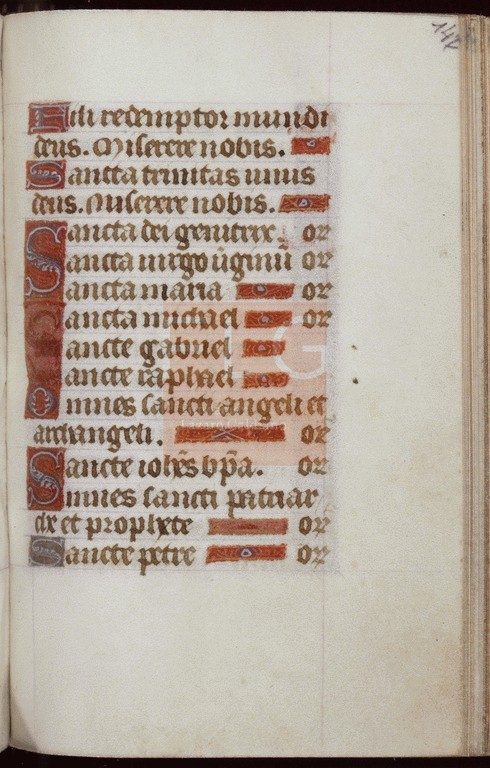 142
Fili redemptor mundi
deus. Miserere nobis.
Sancta trinitas unus
deus. Miserere nobis.
Sancta dei genitrix. or
Sancta uirgo ūginū or
Sancta maria or
Sancta michael or
Sancte gabriel
Sancte raphael
Omnes sancti angeli et
archangeli. or
Sancte iohēs bp̄a. or
Omnes sancti patriar
che et prophete or
Sancte petre or